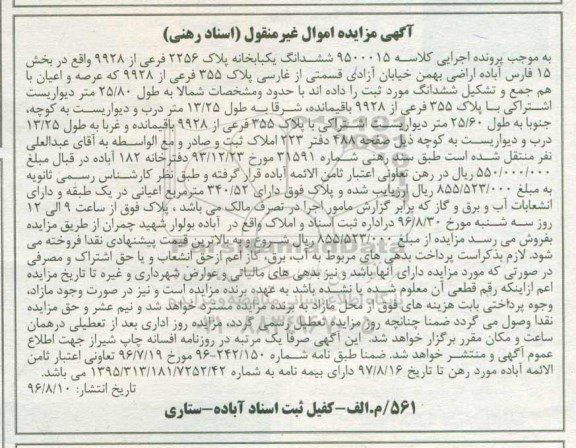 آگهی مزایده اموال غیرمنقول (اسناد رهنی)
به موجب پرونده اجرایی کلاسه ۹۵۰۰۰۱۵ ششدانگ یکبابخانه پلاک ۲۲۵۶ فرعی از ۹۹۲۸ واقع در بخش
۱۵ فارس آباده اراضی بهمن خیابان آزادی قسمتی از غارسی پلاک ۳۵۵ فرعی از ۹۹۲۸ که عرصه و اعیان با
هم جمع و تشکیل ششدانگ مورد ثبت را داده اند با حدود ومشخصات شمالا به طول ۲۵/۸۰ متر دیواریست
اشتراکی با پلاک ۳۵۵ فرعی از ۹۹۲۸ باقیمانده، شرقا به طول ۱۳/۲۵ متر درب و دیواریست، به کوچه،
جنوبا به طول ۲۵/۶۰ متر دیواریست اشتراکی با پلاک ۳۵۵ فرعی از ۹۹۲۸ باقیمانده و غربا به طول ۱۳/۲۵
درب و دیواریست به کوچه ذیل صفحه ۴۸۸ دفتر ۲۲۳ املاک ثبت و صادر و مع الواسطه به آقای عبدالعلی
نفر منتقل شده است طبق سند رهنی شماره ۳۱۵۹۱ مورخ ۹۳/۱۲/۲۳ دفترخانه ۱۸۲ آباده در قبال مبلغ
۵۵۰/۰۰۰/۰۰۰ ریال در رهن تعاونی اعتبار ثامن الائمه آباده قرار گرفته و طبق نظر کارشناس رسمی ثانویه
به مبلغ ۸۵۵/۵۲۳/۰۰۰ ریال ارزیابب شده و پلاک فوق دارای ۳۴۰/۵۲ مترمربع اعیانی در یک طبقه و دارای
انشعابات آب و برق و گاز که برابر گزارش مامور اجرا در تصرف مالک می باشد ، پلاک فوق از ساعت ۹ الی ۱۲
روز سه شنبه مورخ ۹۶/۸/۳۰ دراداره ثبت اسناد و املاک واقع در آباده بولوار شهید چمران از طریق مزایده
بفروش می رسد مزایده از مبلغ ۸۵۵/۵۲۳/۰۰۰ ریال شروع و به بالاترین قیمت پیشنهادی نقدا فروخته می
شود. لازم بذکراست پرداخت بدهی های مربوط به آب، برق، گاز اعم ازحق انشعاب و یا حق اشتراک و مصرفی
در صورتی که مورد مزایده دارای آنها باشد و نیز بدهی های مالیاتی و عوارض شهرداری و غیره تا تاریخ مزایده
اعم ازاینکه رقم قطعی آن معلوم شده یا نشده باشد به عهده برنده مزایده است و نیز در صورت وجود مازاد،
وجوه پرداختی بابت هزینه های فوق از محل مازاد به برنده مزایده مسترد خواهد شد و نیم عشر و حق مزایده
نقدا وصول می گردد ضمنا چنانچه روز مزایده تعطیل رسمی گردد، مزایده روز اداری بعد از تعطیلی درهمان
ساعت و مکان مقرر برگزار خواهد شد. این آگهی صرفا یک مرتبه در روزنامه افسانه چاپ شیراز جهت اطلاع
عموم آگهی و منتشر خواهد شد. ضمنا طبق نامه شماره ۲۴۲/۱۵۰-۹۶ مورخ ۹۶/۷/۱۹ تعاونی اعتبار ثامن
الائمه آباده مورد رهن تا تاریخ ۹۷/۸/۱۶ دارای بیمه نامه به شماره ۱۳۹۵/۳۱۳/۱۸۱/۷۲۵۲/۴۲ می باشد.
تاریخ انتشار: ۹۶/۸/۱۰
۵۶۱/م.الف-کفیل ثبت اسناد آباده-ستاری